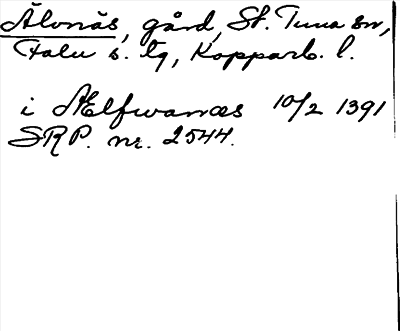 Älvnäs, gård, St. Tuna sn,
Falu s. tg, Kopparb. l.
i Ælfwanæs 10/2 1391
SRP. nr. 2544.